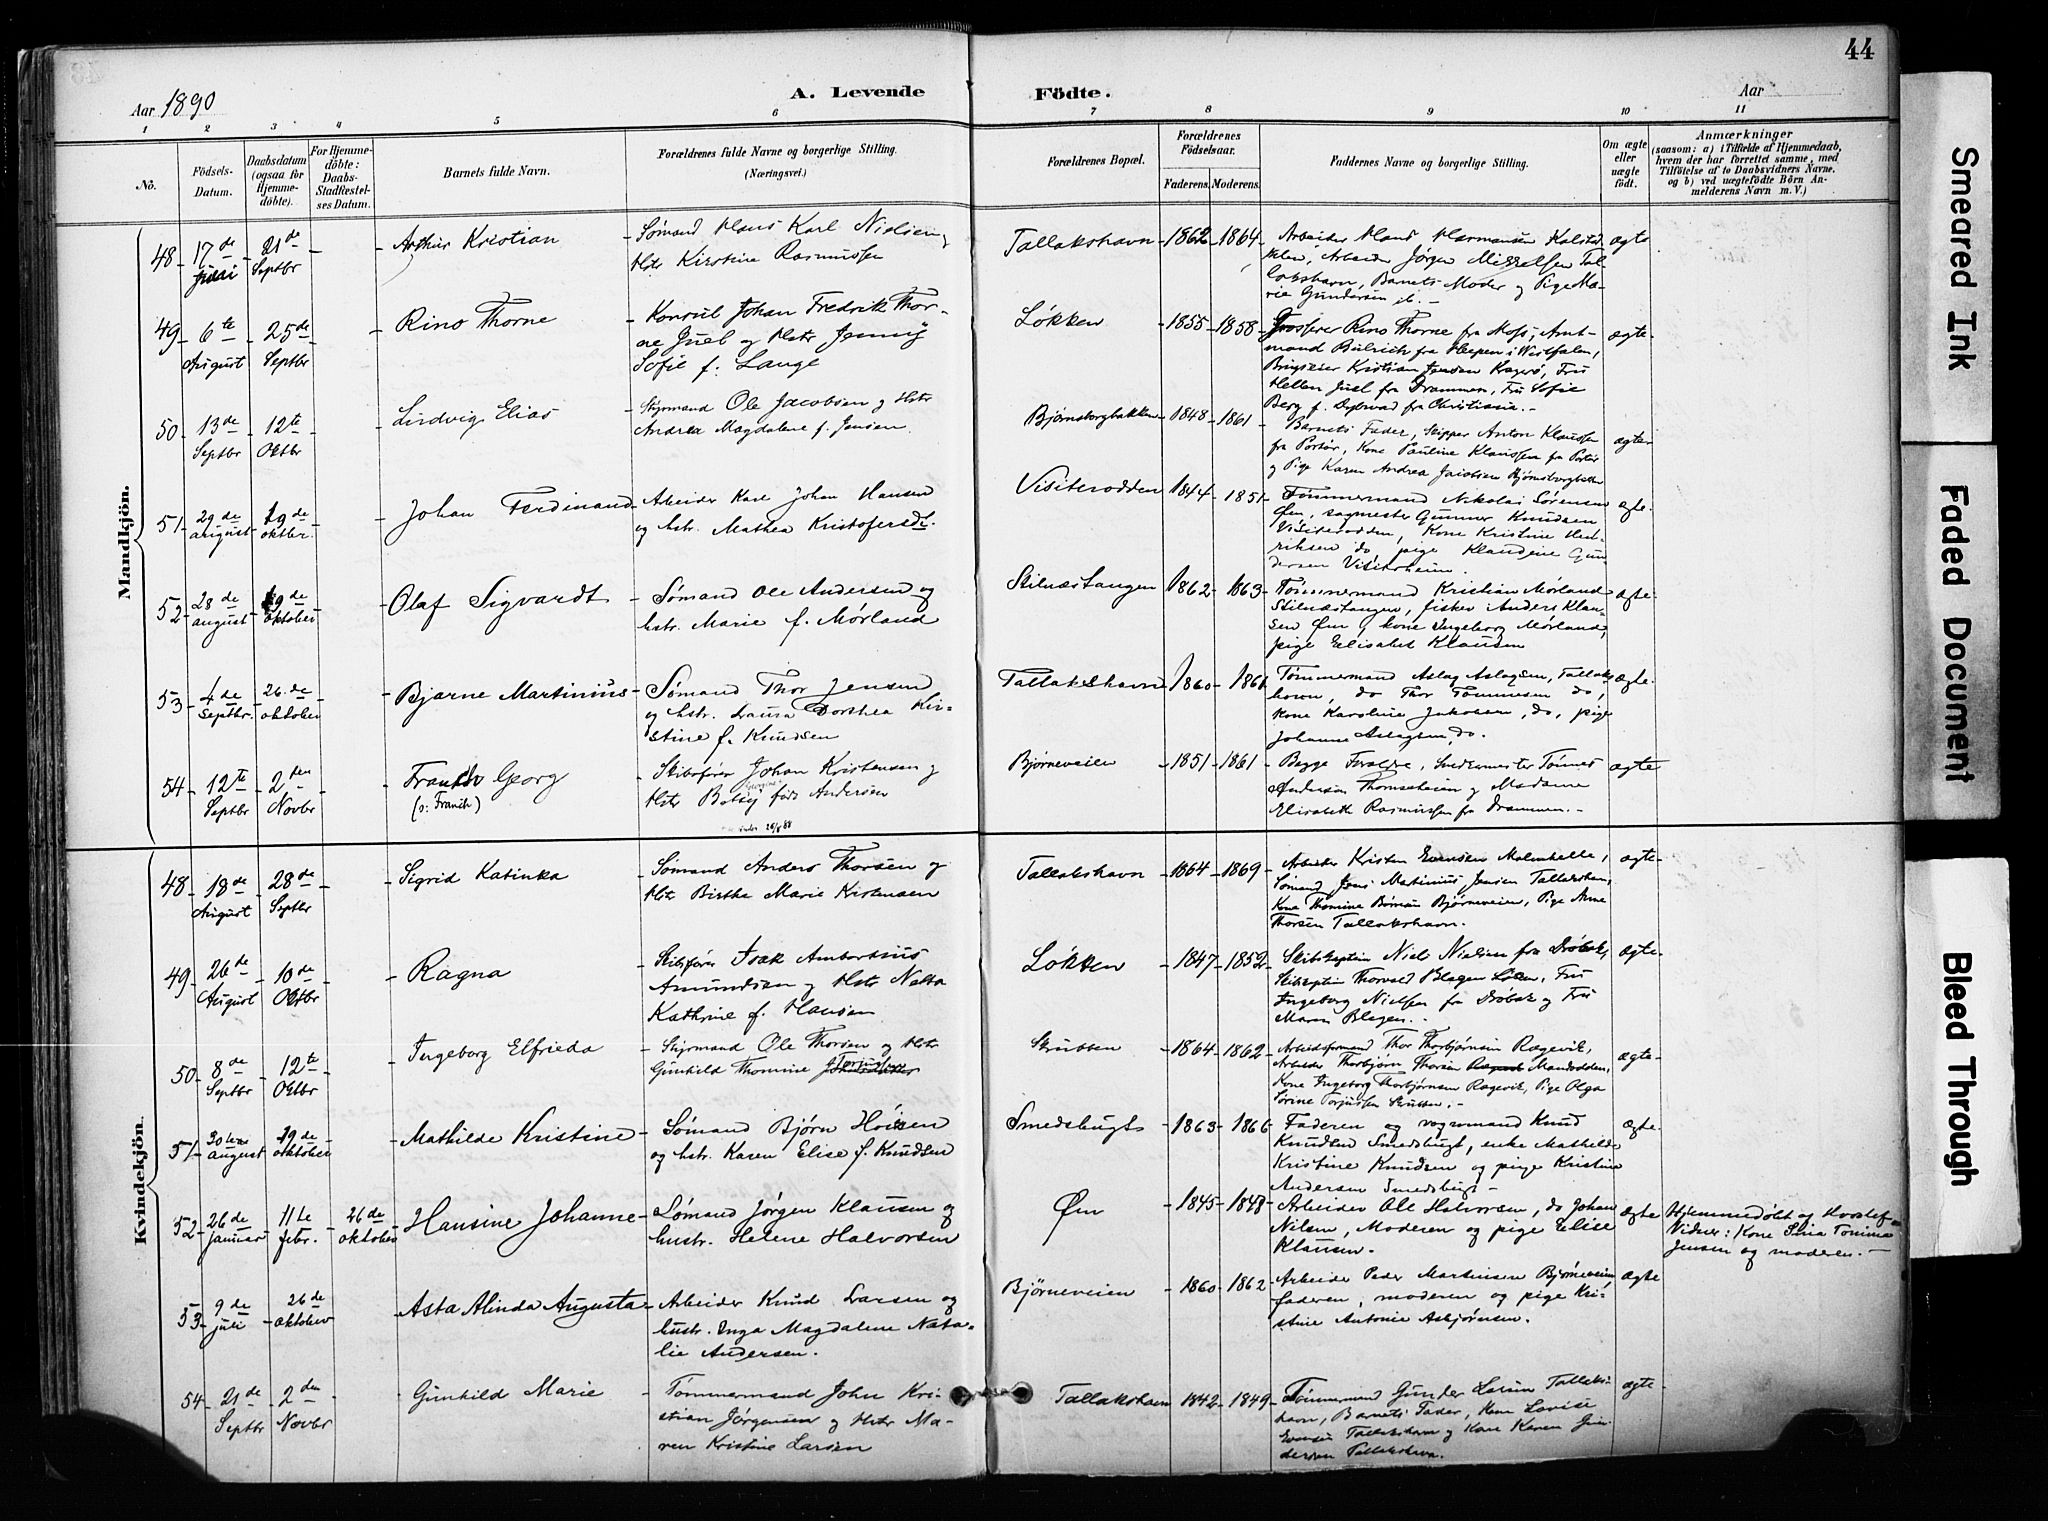 44
Aar 1890
A. Levende Födte.
Aar
1 2 3 4 5 6 7 8 9 10 11
No.
Födsels-Datum.
Daabsdatum (ogsaa for Hjemme-döbte).
For Hjemme-döbte: Daabs-Stadfæstel-ses Datum.
Barnets fulde Navn.
Forældrenes fulde Navne og borgerlige Stilling.
(Næringsvei.)
Forældrenes Bopæl.
Forældrenes Födselsaar.
Faderens. Moderens.
Faddernes Navne og borgerlige Stilling.
Om ægte eller uægte födt.
Anmærkninger
(saasom: a) i Tilfælde af Hjemmedaab, hvem der har forrettet samme, med Tilföielse af to Daabsvidners Navne. og b) ved uægtefödte Börn An-melderens Navn m. V.)
Mandkjön.
48 17de 21de Septbr Arthur Kristian
Sømand Hans Karl Nielsen
Hstr Kirstine Rasmussen
Tallakshavn 1862 1864
Arbeider Hans Harmansen Kalstad-
kilen, Arbeider Jørgen Mikkelsen Tal-
lakshavn, Barnets Moder og Pige Ma-
rie Gundersen
ægte
49 6te August 25de Septbr Rino Thorne
Konsul Johan Fredrik Thor-
ne Juel og Hstr Jenny
Sofie f. Lange
Løkken 1855 1858
Grosserer Rino Thorne fra Moss, Amt-
mand Bülrich fra Heepen i Westfalen,
Brugseier Kristian Jensen Kragerø, Fru
Hellen Juel fra Drammen, Fru Sofie
Berg f. Dybvad fra Christiania.-
ægte-
50 13de Septbr 12te Oktbr Ludvig Elias
Styrmand Ole Jacobsen og Hstr
Andrea Magdalene f. Jensen
Bjørnsborgbakken 1848 1861
Barnets Fader, Skipper Anton Klaussen
fra Portør, Kone Pauline Klaussen fra Portør
og Pige Karen Andrea Jacobsen Bjørnsborgbakken
ægte
51 29de august 19de oktbr. Johan Ferdinand
Arbeider Karl Johan Hansen
og hstr. Mathea Kristofersd.
Visiterodden 1844 1851
Tømmermand Nikolai Sørensen
Øen, sagmester Gunner Knudsen
Visiterodden, Kone Kristine Hen-
riksen do pige Klaudine Gun-
dersen Visiterheim.
ægte.
52 28de august 19de oktober Olaf Sigvardt
Sømand Ole Andersen og
hstr. Marie f. Mørland
Stilnæstangen 1862 1863
Tømmermand Kristian Mørland
Stilnæstangen, fisker Anders Klau-
sen Øen, kone Ingeborg Mørland,
pige Elisabet Klausen
ægte
53 4de Septbr. 26.de oktober Bjarne Martinius
Sømand Thor Jensen
og hstr. Laura Dorthea Kir-
stine f. Knudsen
Tallakshavn 1860 1861
Tømmermand Aslag Aslagsen, Tallaks-
havn, do Thor Tommesen do,
kone Karoline Jakobsen, do, pige
Johanne Aslagsen, do.
ægte.
54 12te Septbr 2den Novbr Georg
(o: Franck)
Skibsfører Johan Kristensen og
Hstr Betty født Andersen
26/8 88
Bjørneveien 1851 1861
Begge Forældre, Smedemester Tønnes
Andersen Thomsheien og Madame
Elisabeth Rasmussen fra Drammen.-
ægte
Kvindekjön.
48 18de August 28de Septbr Sigrid Katinka
Sømand Anders Thorsen og
Hstr Birthe Marie Kristensen
Tallakshavn 1864 1869
Arbeider Kristen Evensen Malmhelle,
Sømand Jens Martinius Jensen Tallakshavn,
Kone Thomine Bømsen Bjørneveien, Pige Anne
Thorsen Tallakshavn.
ægte-
49 26de August 10de Oktbr Ragna
Skibsfører Isak Ambrosius
Amundsen og Hstr Nalta
Kathrine f. Hansen
Løkken 1847 1852
Skibskaptein Niels Nielsen fra Drøbak,
Skibskaptein Thorvald Blegen Løken, Fru
Ingeborg Nielsen fra Drøbak og Fru
Maren Blegen.
ægte-
50 8de Septbr 12te Oktbr Ingeborg Elfrieda
Styrmand Ole Thorsen og Hstr
Gunhild Thomine
Skrubben 1864 1862
Arbeidsformand Thor Thorbjørnsen Rægevik,
Arbeider Thorbjørn Thorsen Mandodden,
Kone Ingeborg Thorbjørnsen Rægevik, Pige Olga
Sørine Torjussen Skrubben.-
ægte-
51 august 19de oktober Mathilde Kristine
Sømand Bjørn Hoisen
og hstr. Karen Elise f. Knudsen
Smedsbugt 1863 1866
Faderen og vognmand Knud
Knudsen Smedsbugt, enke Mathilde
Kristine Knudsen og pige Kristine
Andersen Smedsbugt-
ægte-
52 26de januar 11te febr. 26de oktober Hansine Johanne
Sømand Jørgen Klausen og
hustr. Helene Halvorsen
Øen 1845 1848
Arbeider Ole Halvorsen, do Johan
Nilsen, Moderen og pige Elise
Klausen.
ægte
Hjemmedøbt af
Vidner: Kone Sina Tomine
Jensen og moderen.-
53 9de juli 26de oktober Asta Alinda Augusta
Arbeider Knud Larsen og
hustr. Inga Magdalene Nata-
lie Andersen.
Bjørneveien 1860 1862
Arbeider Peder Martinsen Bjørneveien
faderen, moderen og pige Kri-
stine Antonie Asbjørnsen.
ægte
54 21de Septbr 2den Novbr Gunhild Marie
Tømmermand John Kri-
stian Jørgensen og Hstr Ma-
ren Kristine Larsen
Tallakshavn 1842 1849
Tømmermand Gunder Larsen Tallaks-
havn, Barnets Fader, Kone Lovise
Evensen Tallakshavn og Kone Karen Gun-
dersen Tallakshavn.
ægte-
Smeared Ink
Faded Document
Bleed Through